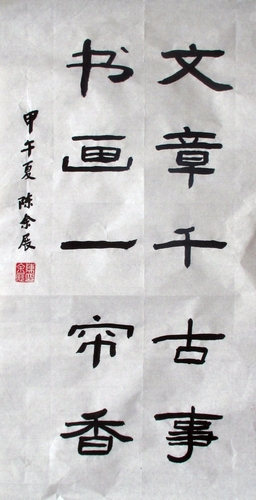 文章千古事
书画一帘香
甲午夏 陈余展